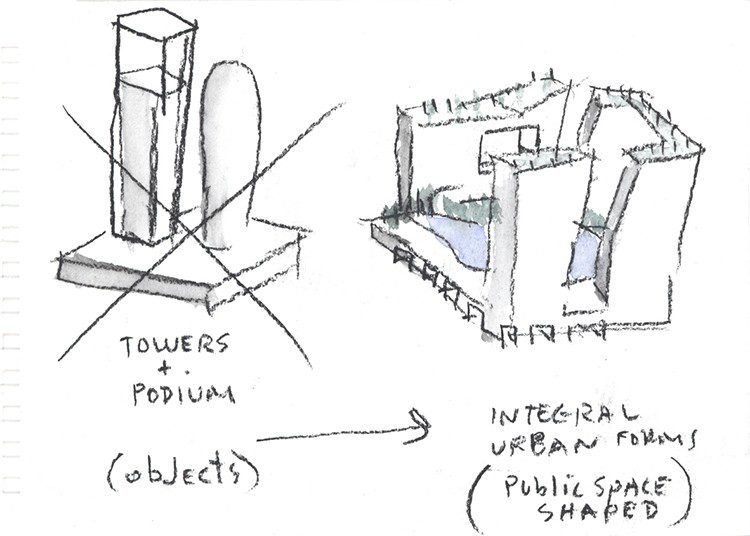 TOWERS
+.
PODIUM
(objects)
INTEGRAL
URBAN FORMS
(Public SPACE
SHAPED)